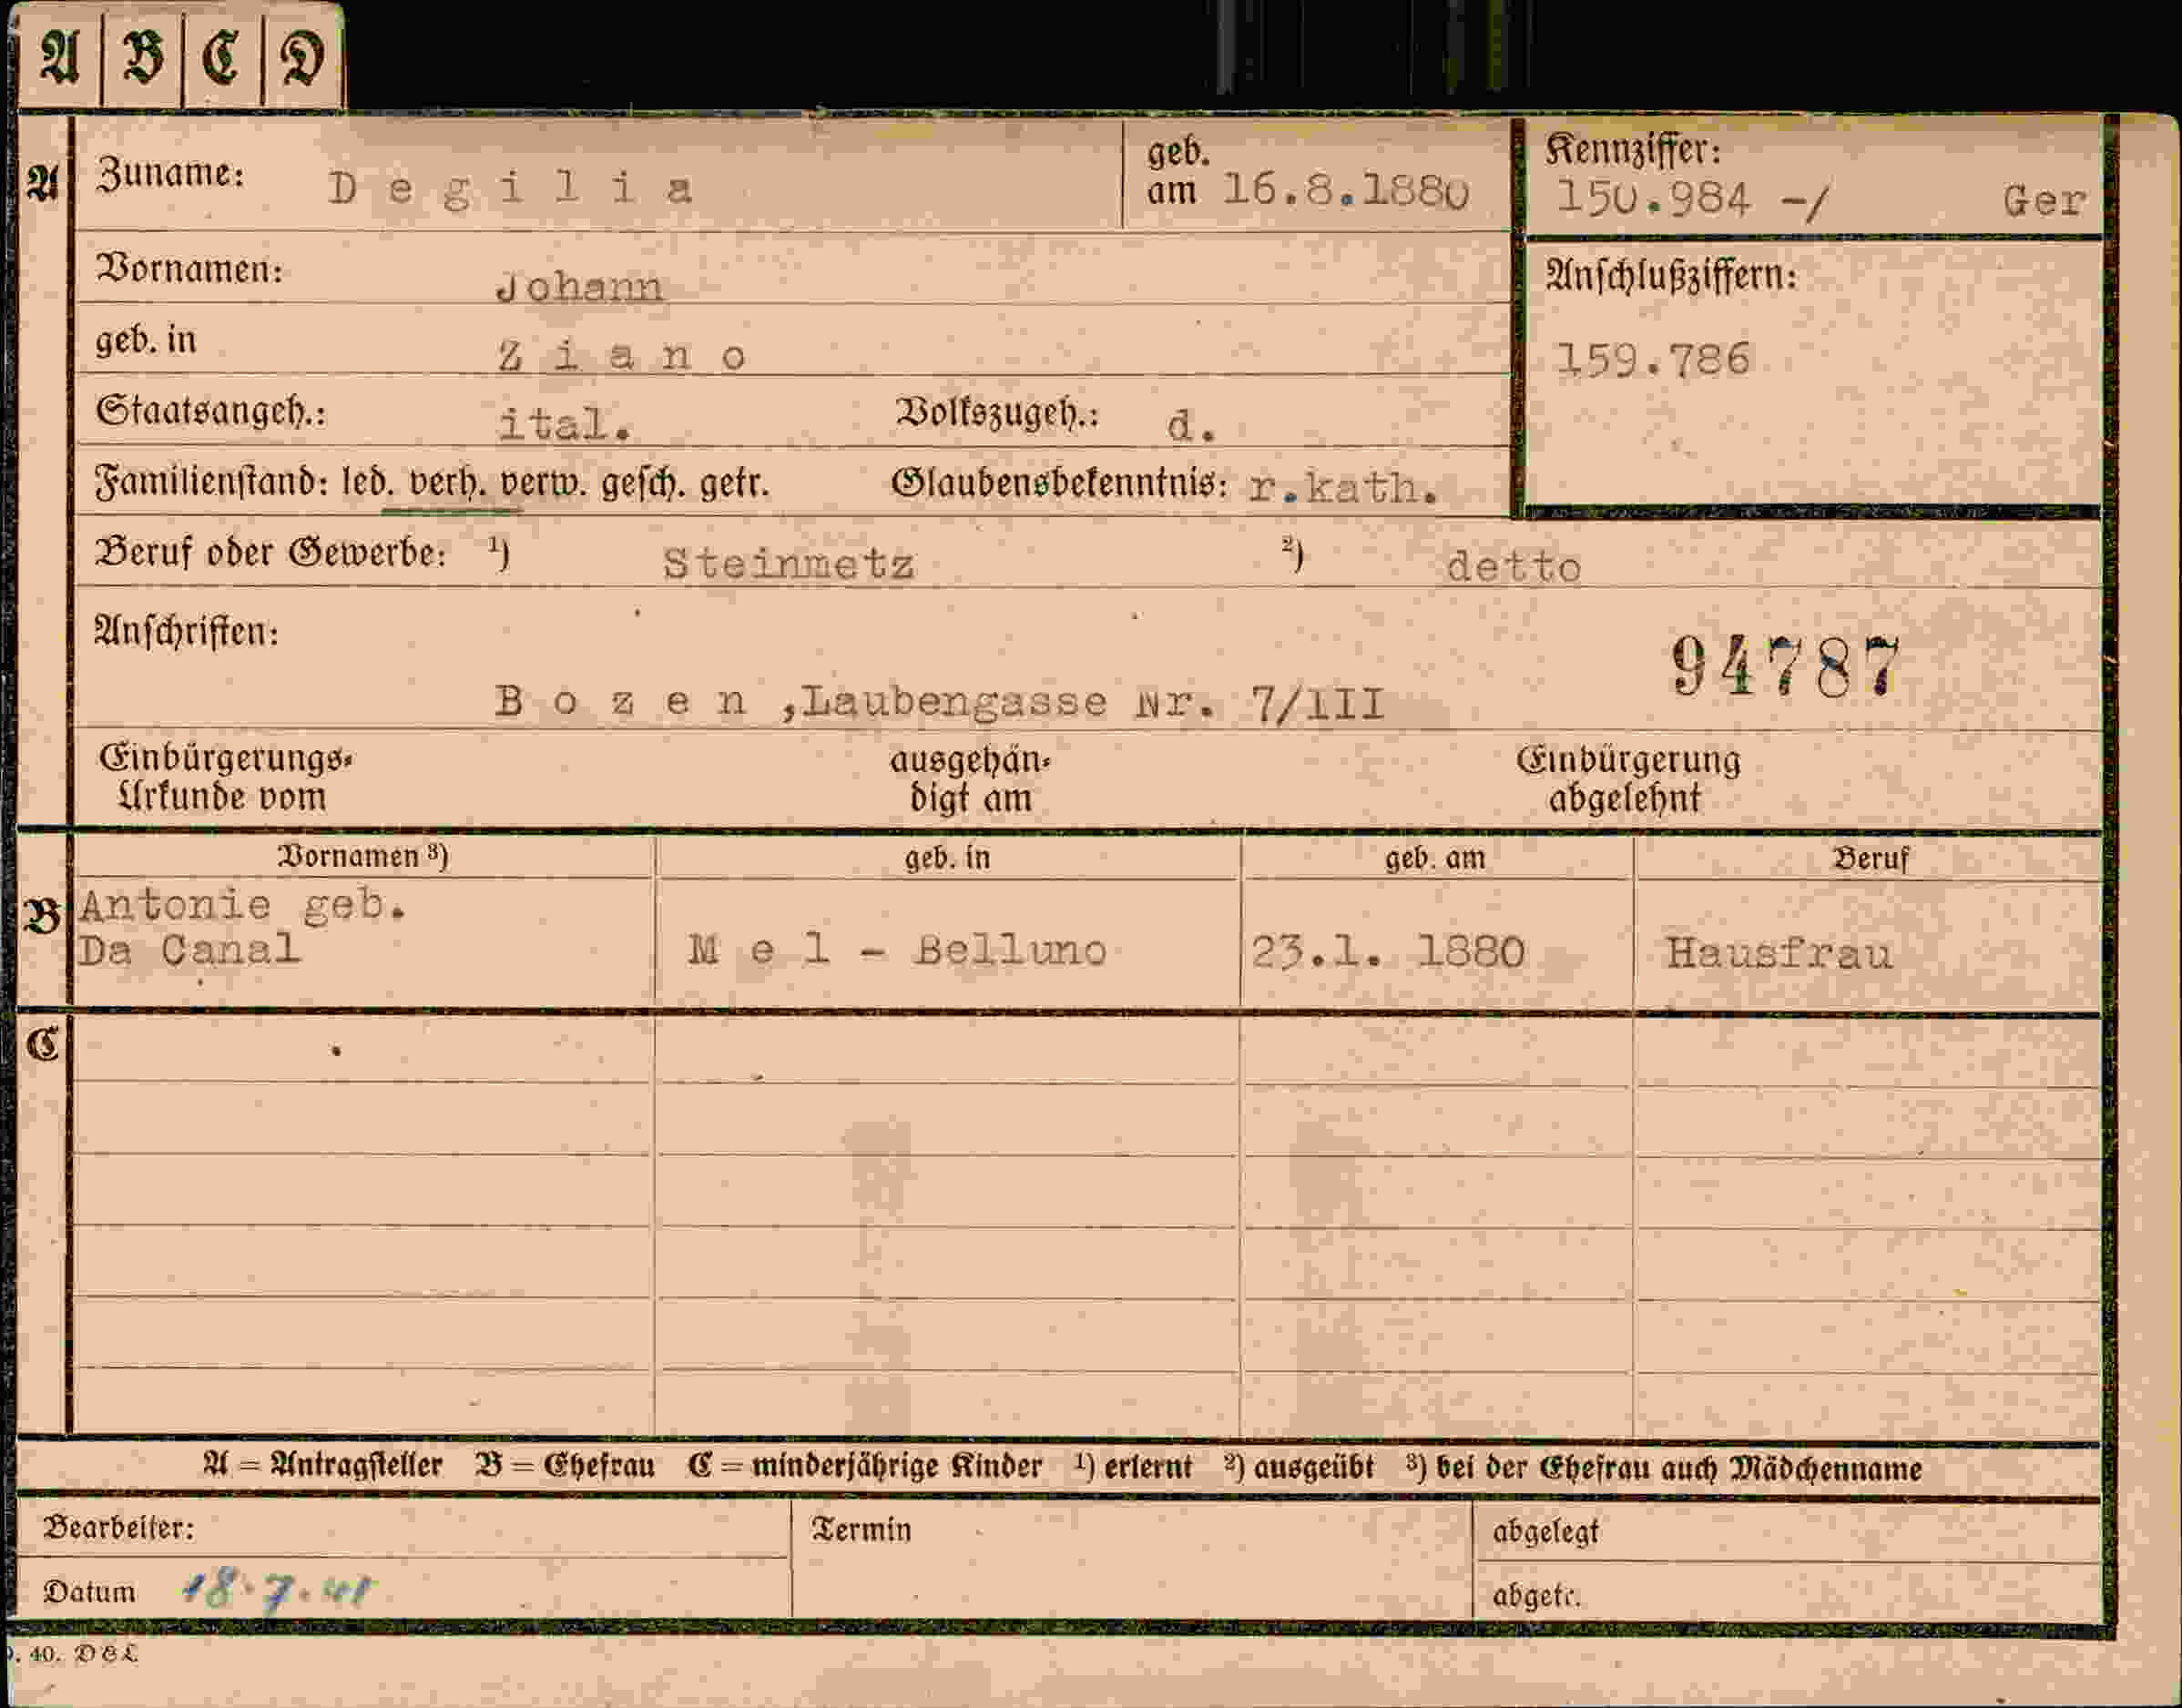 A B C D
A Zuname: Degilia geb. am 16.8.1880 Kennziffer: 150.984 -/ Ger
Vornamen: Johann Anschlußziffern:
geb. in Ziano 159.786
Staatsangeh.: ital. Volkszugeh.: d.
Familienstand: led. verh. verw. gesch. getr. Glaubensbekenntnis: r.kath.
Beruf oder Gewerbe: ¹) Steinmetz ²) detto
Anschriften: 94787
Bozen ,Laubengasse Nr. 7/III
Einbürgerungs- ausgehän- Einbürgerung
Urkunde vom digt am abgelehnt
Vornamen ³) geb. in geb. am Beruf
B Antonie geb.
Da Canal Mel - Belluno 23.1. 1880 Hausfrau
C
A = Antragsteller B = Ehefrau C = minderjährige Kinder ¹) erlernt ²) ausgeübt ³) bei der Ehefrau auch Mädchenname
Bearbeiter: Termin abgelegt
Datum 18.7.41 abgetr.
. 40. D&L